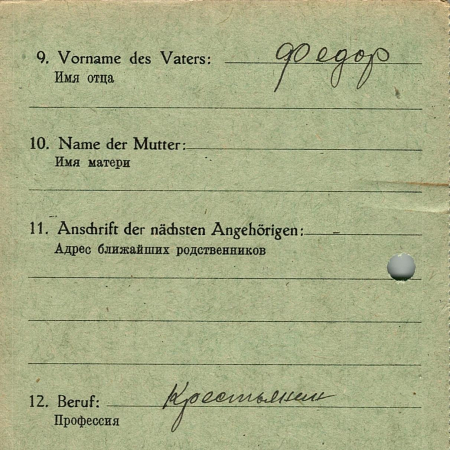 9. Vorname des Vaters: Федор
Имя отца
10. Name der Mutter:
Имя матери
11. Anschrift der nächsten Angehörigen: -
Адрес ближайших родственников
12. Beruf: Крестьянин
Профессия